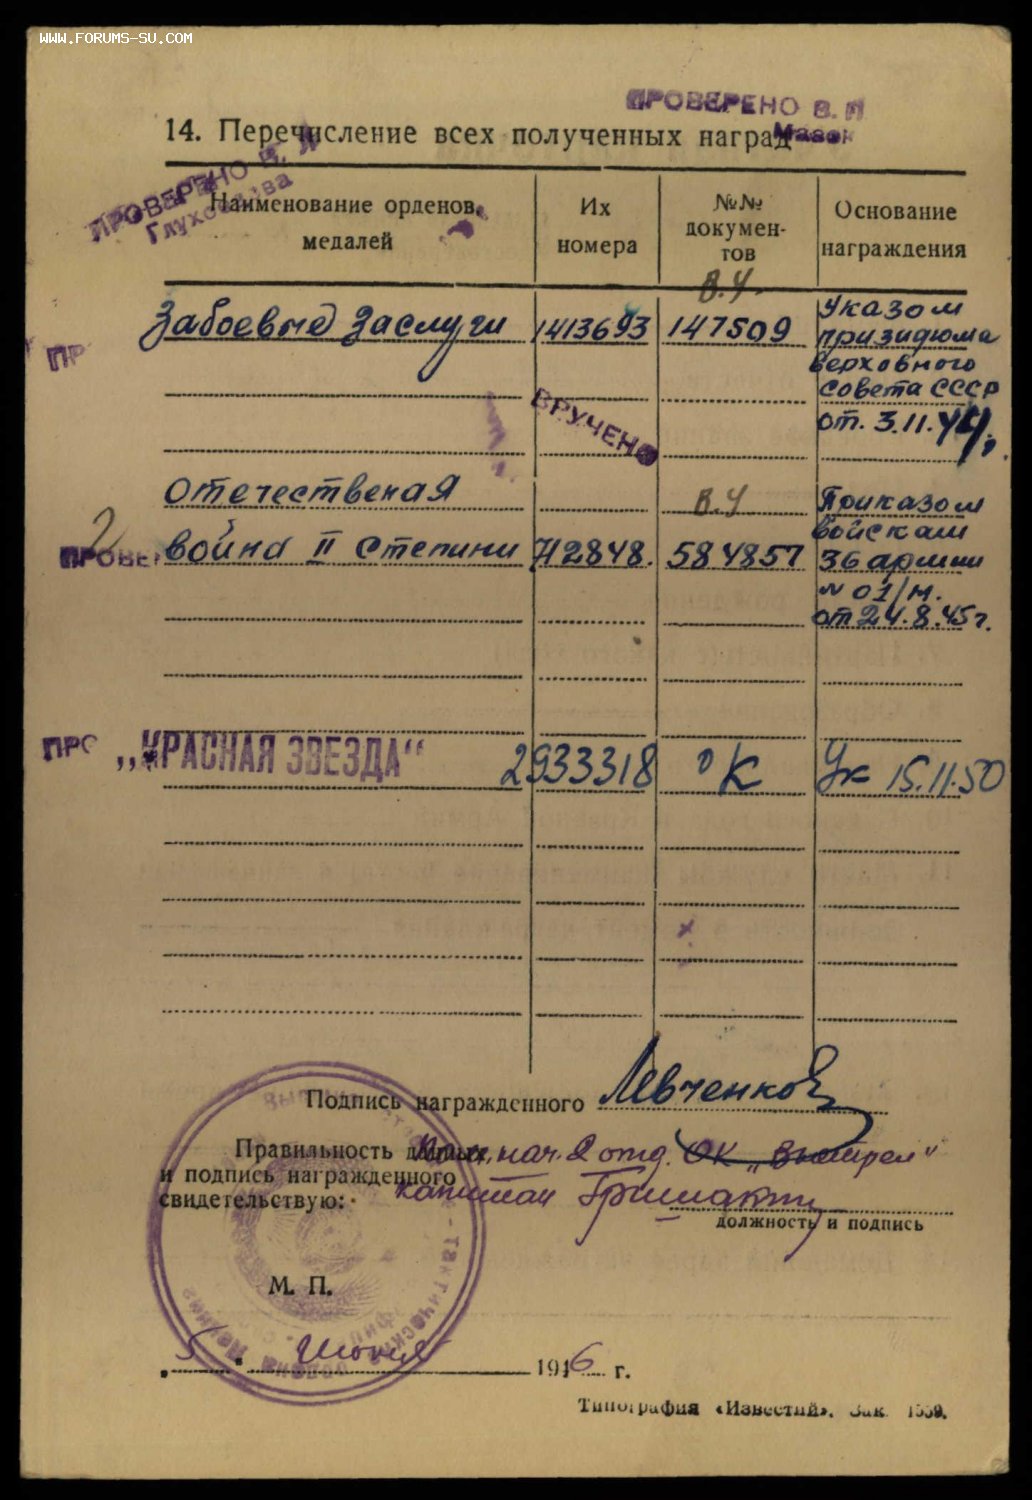 WWW.FORUMS-SU.COM
ПРОВЕРЕНО В. П
14. Перечисление всех полученных наград
ПРОВЕРЕНО В. Л
Глуховцева
Наименование орденов,
медалей
Их
номера
№№
докумен-
тов
Основание
награждения
В.У.
Забоевые заслуги 1413693 147509
Указом
призидюма
верховного
совета СССР
от. 3.11.44г.
ПР
ВРУЧЕНО
Отечественая
В.У
2
ПРОВЕР
война II степини 712848. 584857
Приказом
войскам
36 армии
№ 01/н.
от 24.8.45г.
ПРО
„КРАСНАЯ ЗВЕЗДА“ 2933318 ОК Ук 15.11.50
Подпись награжденного Левченков
Правильность данных
и подпись награжденного
свидетельствую:
нач. 2 отд. ОК „Выстрел“
капитан
должность и подпись
М. П.
„5“ Июня 1946 г.
Типография «Известий». Зак. 1559.